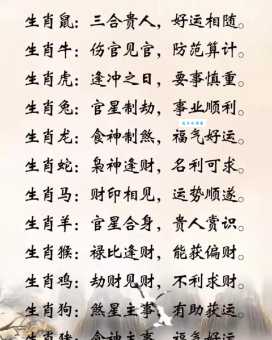 生肖鼠：三合贵人，好运相随。
生肖牛：伤官见官，防范算计。
生肖虎：逢冲之日，要事慎重。
生肖兔：官星制劫，事业顺利。
生肖龙：食神制煞，福气好运。
生肖蛇：枭神逢财，名利可求。
生肖马：财印相见，运势顺遂。
生肖羊：官星合身，贵人赏识。
生肖猴：禄比逢财，能获偏财。
生肖鸡：劫财见财，不利求财。
生肖狗：煞星主事，有助获运。
生肖猪：食神主事，福气好运。